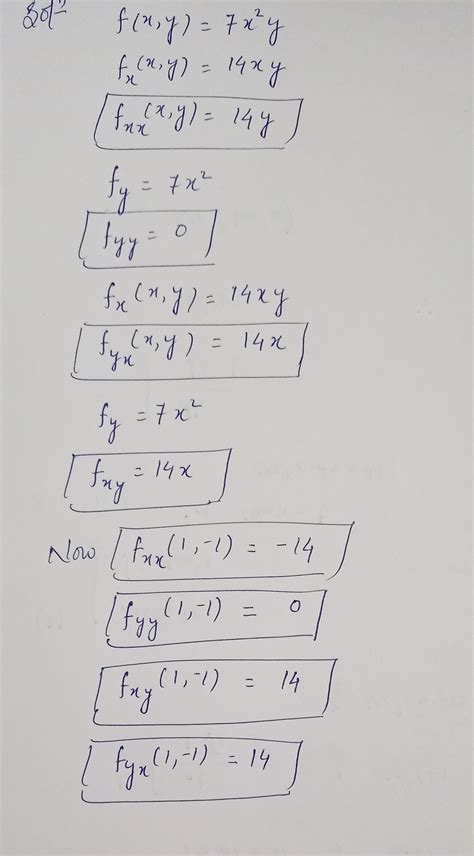 Solⁿ
f(x,y) = 7x²y
fₓ(x,y) = 14xy
fₓₓ(x,y) = 14y
f_y = 7x²
f_yy = 0
fₓ(x,y) = 14xy
f_yx(x,y) = 14x
f_y = 7x²
f_xy = 14x
Now fₓₓ(1,-1) = -14
f_yy(1,-1) = 0
f_xy(1,-1) = 14
f_yx(1,-1) = 14